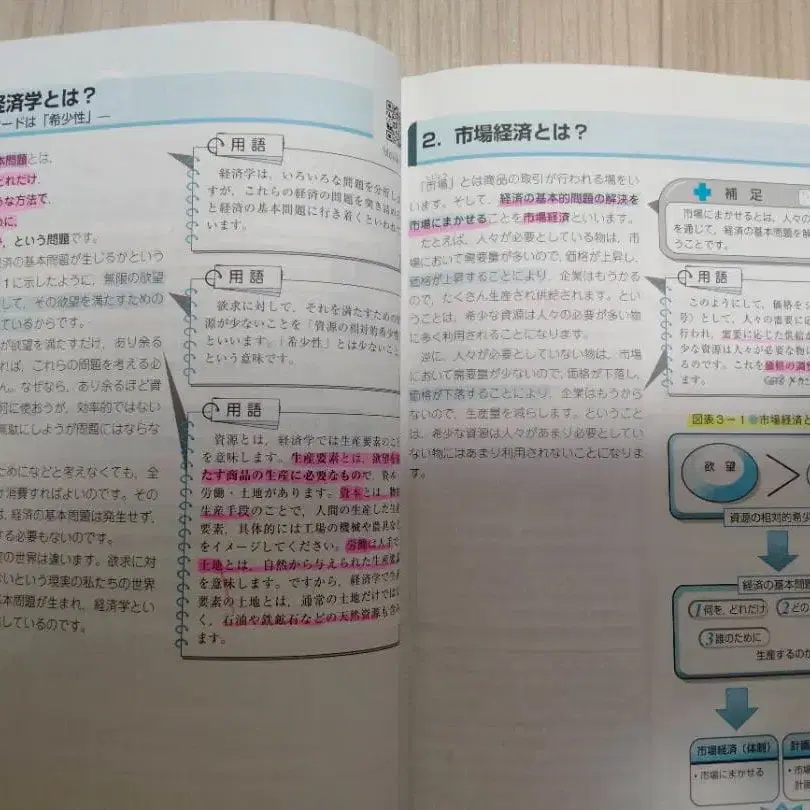 経済学とは？
ードは「希少性」―
本問題とは、
どれだけ、
うな方法で、
めに、
か、という問題です。
済の基本問題が生じるかという
1に示したように、無限の欲望
して、その欲望を満たすための
ているからです。
が欲望を満たすだけ、あり余る
れば、これらの問題を考える必
ん。なぜなら、あり余るほど資
何に使おうが、効率的ではない
無駄にしようが問題にはならな
ためになどと考えなくても、全
け消費すればよいのです。その
は、経済の基本問題は発生せず、
する必要もないのです。
の世界は違います。欲求に対
ないという現実の私たちの世界
基本問題が生まれ、経済学とい
しているのです。
用語
経済学は、いろいろな問題を分析し
すが、これらの経済の問題を突き詰め
と経済の基本問題に行き着くといわれ
います。
用語
欲求に対して、それを満たすための
源が少ないことを「資源の相対的希少性
といいます。「希少性」とは少ないこ
という意味です。
用語
資源とは、経済学では生産要素のこ
を意味します。生産要素とは、欲望を
たす商品の生産に必要なもので、資本
労働・土地があります。資本とは、物的
生産手段のことで、人間の生産した生
要素、具体的には工場の機械や農具な
をイメージしてください。労働は人手で
土地とは、自然から与えられた生産要
を意味します。ですから、経済学で生
要素の土地とは、通常の土地だけでは
く、石油や鉄鉱石などの天然資源も含
ます。
2. 市場経済とは？
「市場」とは商品の取引が行われる場をい
います。そして、経済の基本的問題の解決を
市場にまかせることを市場経済といいます。
たとえば、人々が必要としている物は、市
場において需要量が多いので、価格が上昇し、
価格が上昇することにより、企業はもうかる
ので、たくさん生産され供給されます。とい
うことは、希少な資源は人々の必要が多い物
に多く利用されることになります。
逆に、人々が必要としていない物は、市場
において需要量が少ないので、価格が下落し、
価格が下落することにより、企業はもうから
ないので、生産量を減らします。ということ
は、希少な資源は人々があまり必要としてい
ない物にはあまり利用されないことになりま
す。
補足
市場にまかせるとは、人々の
を通じて、経済の基本問題を解
うことです。
用語
このようにして、価格を
号）として、人々の需要に応
行われ、需要に応じた供給が
少な資源は人々が必要な物に
るのです。これを価格の
ます。
図表3－1 市場経済と
欲望
＞
資源の相対的希少
経済の基本問題
1何を、どれだけ
2どの
3誰のために
生産するのか
市場経済（体制）
・市場にまかせる
計画
・市場
計画